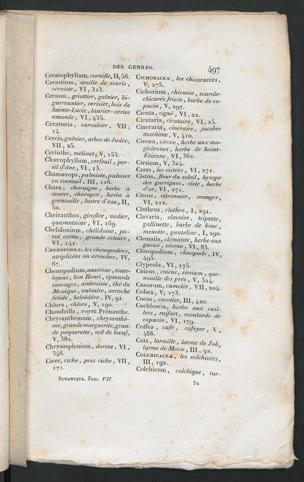 DES GENRES.
497
Ceratophyllum, cornifle, II, 56.
Cerastium, oreille de souris, céraiste, VI, 313.
Cerasus, griottier, guînier, bigarreautier, cerisier, bois de Sainte-Lucie, laurier-cerise amande, VI, 435.
Ceratonia, caroubier, VII, 14.
Cercis, gaînier, arbre de Judée, VII, 25.
Cerinthe, mélinet, V, 153.
Chærophyllum, cerfeuil, persil d'âne, VI, 13.
Chamærops, palmiste, palmier en éventail, III, 116.
Chara, charaigne, herbe à écurer, charapot, herbe à grenouille, lustre d'eau, II, 50.
Cheiranthus, giroflée, violier, quarantaine, VI, 169
Chelidonium, chélidoine, pavot cornu, grande éclaire, VI, 141.
CHENOPODEÆ, les chénopodées, atriplicées ou arroches, IV, 67.
Chenopodium, anserine, bonhomme, bon Henri, épinards sauvages, ambroisie, thé du Mexique, vulvaire, arroche fétide, belvédère, IV, 91.
Chlora, chlore, V, 190.
Chondrilla, voyez Prénanthe.
Chrysanthemum, chrysanthème, grande marguerite, grande paquerette, œil de bœuf, V, 382.
Chrysosplenium, dorine, VI, 346.
Cicer, ciche, pois ciche, VII, 171.
BOTANIQUE. Tom. VII.
CICHORACEÆ, les chicoracées, V, 276.
Cichorium, chicorée, scarole, chicorée frisée, barbe de capucin, V, 297.
Cicuta, ciguë, VI, 22.
Cicutaria, cicutaire, VI, 25.
Cineraria, cinéraire, jacobée maritime, V, 410.
Circæa, circée, herbe aux magiciennes, herbe de Saint-Étienne, VI, 362.
Cirsium, V, 324.
Cisti, les cistées, V, 271.
Cistus, fleur de soleil, hysope des garrigues, ciste, herbe d'or, VI, 271.
Citrus, citronnier, oranger, VI, 212.
Clathrus, clathre, I, 291.
Clavaria, clavaire, tripette, gallinette, barbe de bouc, menotte, ganteline, I, 290.
Clematis, clématite, herbe aux gueux, viorne, VI, 83.
Clinopodium, clinopode, IV, 493.
Clypeola, VI, 175.
Cnicus, cnicus, cirsium, quenouille des prés, V, 324.
Cneorum, camelée, VII, 204.
Cobæa, V, 173.
Cocos, cocotier, III, 420.
Cochlearia, herbe aux cuillers, raifort, moutarde de capucin, VI, 179.
Coffea, café, cafeyer, V, 468.
Coix, larmille, larme de Job, larme de Moïse, III, 92.
COLCHICACEÆ, les colchicées, III, 192.
Colchicum, colchique, tue-
32